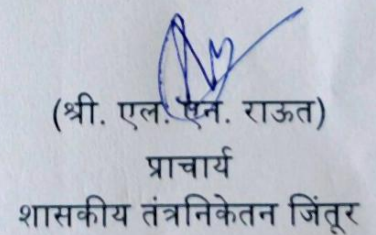 (श्री. एल. एन. राऊत)
प्राचार्य
शासकीय तंत्रनिकेतन जिंतूर